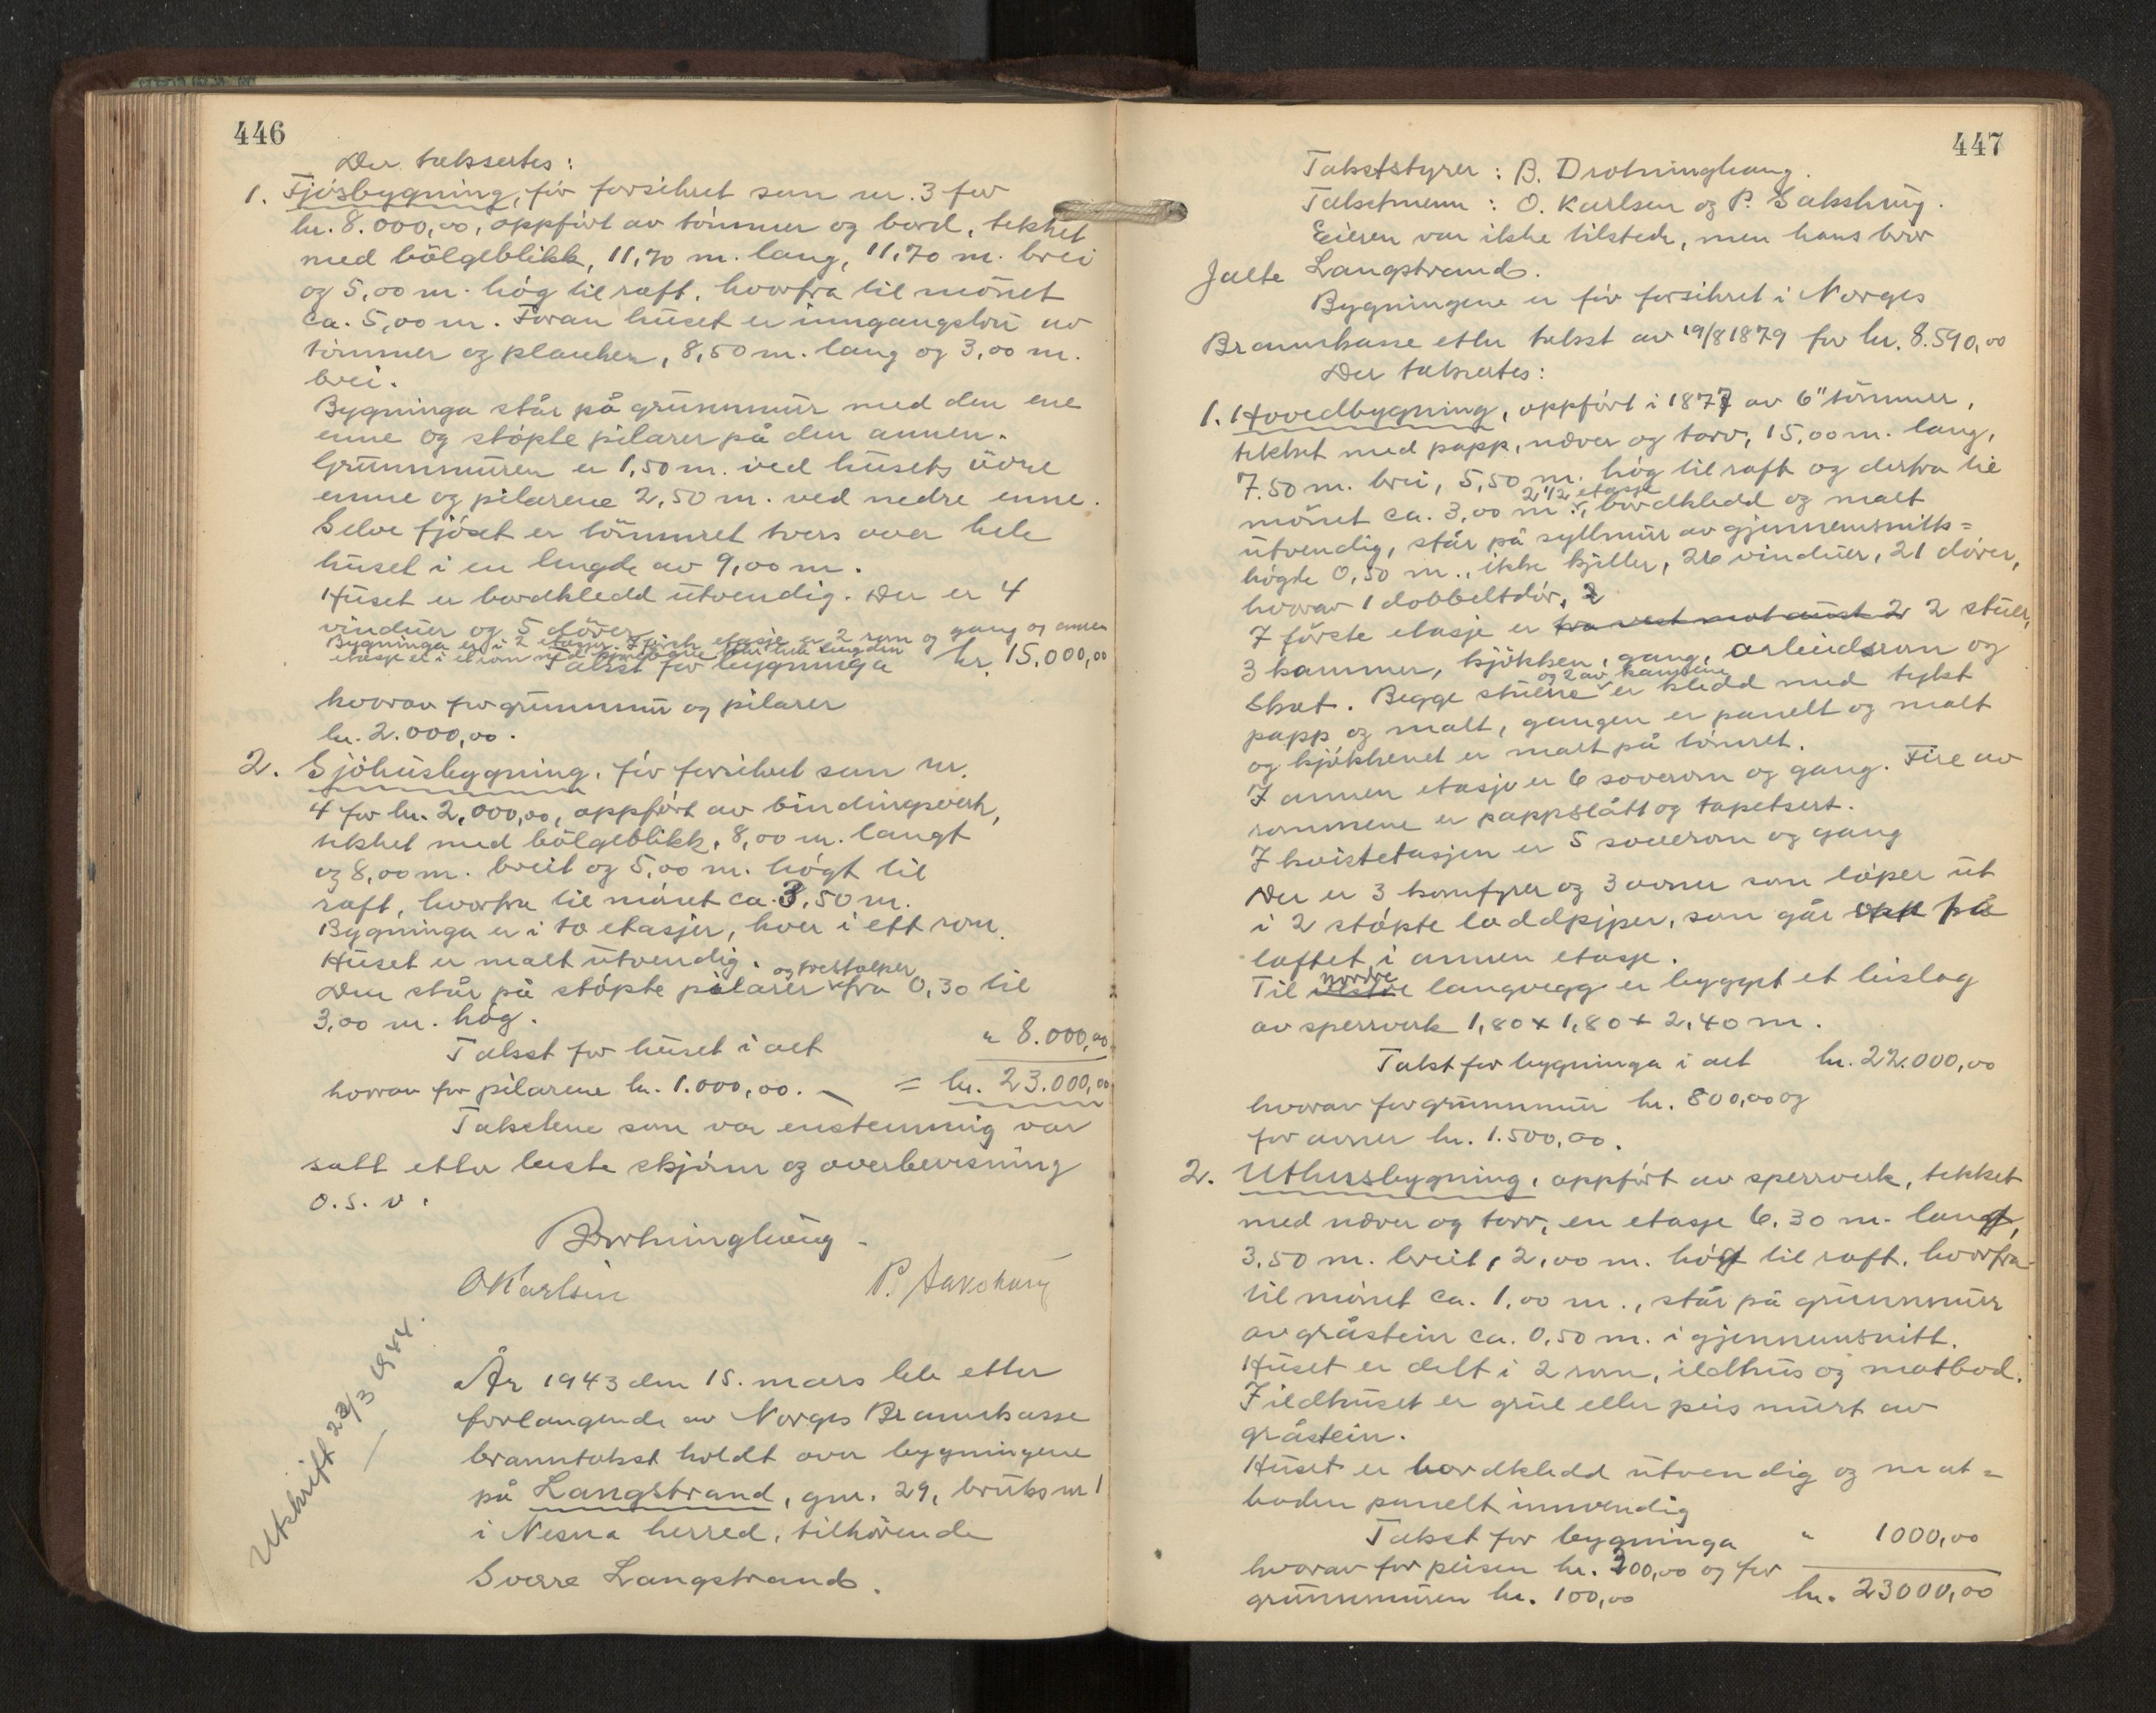 446
Der taksertes:
1. Fjøsbygning, før forsikret som nr. 3 for
kr. 8.000,00, oppført av tømmer og bord, tekket
med bölgeblikk, 11,70 m. lang, 11,70 m. brei
og 5,00 m. høg til raft, hvorfra til mønet
ca. 5,00 m. Foran huset er inngangsbru av
tømmer og planker, 8,50 m. lang og 3,00 m.
brei.
Bygninga står på grunnmur med den ene
enne og støpte pilarer på den annen.
Grunnmuren er 1,50 m. ved husets övre
enne og pilarene 2,50 m. ved nedre enne.
Selve fjøset er tømmret tvers over hele
huset i en lengde av 9,00 m.
Huset er bordkledd utvendig. Der er 4
vinduer og 5 dører
Bygninga er i 2 etasjer. I første etasje er 2 rom og gang og annen
etasje er i et rom med kjørebane hele lengden
Takst for bygninga kr. 15.000,00
hvorav for grunnmur og pilarer
kr. 2.000,00.
2. Sjøhusbygning, før forsikret som nr.
4 for kr. 2,000,00, oppført av bindingsverk,
tekket med bölgeblikk, 8,00 m. langt
og 8,00 m. breit og 5,00 m. høgt til
raft, hvorfra til mønet ca. 3,50 m.
Bygninga er i to etasjer, hver i ett rom.
Huset er malt utvendig.
og trestolper
Den står på støpte pilarer fra 0,30 til
3,00 m. høg.
Takst for huset i alt " 8.000,00
hvorav for pilarene kr. 1.000,00. = kr. 23.000,00
Takstene som var enstemmig var
satt etter beste skjønn og overbevisning
o.s.v.
B Drotninghaug
O Karlsen P. Sakshaug
Utskrift 23/3 1944.
År 1943 den 15. mars ble etter
forlangende av Norges Brannkasse
branntakst holdt over bygningene
på Langstrand, gnr. 29, bruksnr 1
i Nesna herred, tilhørende
Sverre Langstrand.
447
Takststyrer: B. Drotninghaug.
Takstmenn: O. Karlsen og P. Sakshaug.
Eieren var ikke tilstede, men hans bror
Jalte Langstrand.
Bygningene er før forsikret i Norges
Brannkasse etter takst av 19/8 1879 for kr. 8.590,00
Der taksertes:
1. Hovedbygning, oppført i 1877 av 6" tømmer,
tekket med papp, never og torv, 15,00 m. lang,
7.50 m. brei, 5,50 m. høg til raft og derfra til
2 1/2 etasje
mønet ca. 3,00 m., bordkledd og malt
utvendig, står på syllmur av gjennemsnitts=
høgde 0,50 m., ikke kjeller, 26 vinduer, 21 dører,
hvorav 1 dobbeltdør, 2
I første etasje er fra vest mot aust 2 2 stuer,
3 kammer, kjøkken, gang, arbeidsrom og
og 2 av kamrene
Skot. Begge stuene er kledd med tykt
papp og malt, gangen er panelt og malt
og kjøkkenet er malt på tømret.
I annen etasje er 6 soverom og gang. Fire av
rommene er pappslått og tapetsert.
I kvistetasjen er 5 soverom og gang
Der er 3 komfyrer og 3 ovner som løper ut
i 2 støpte loddpiper, som går opp på
loftet i annen etasje.
nordre
Til vestre langvegg er bygget et bislag
av sperrverk 1,80 x 1,80 + 2,40 m.
Takst for bygninga i alt kr. 22.000,00
hvorav for grunnmur kr. 800,00 og
for ovner kr. 1.500,00.
2. Uthusbygning, oppført av sperrverk, tekket
med never og torv, en etasje 6.30 m. langt,
3.50 m. breit, 2,00 m. høgt til raft, hvorfra
til mønet ca. 1,00 m., står på grunnmur
av gråstein ca. 0,50 m. i gjennemsnitt.
Huset er delt i 2 rom, ildhus og matbod.
I ildhuset er grue eller peis murt av
gråstein.
Huset er bordkledd utvendig og mat=
boden panelt innvendig
Takst for bygninga " 1000,00
hvorav for peisen kr. 200,00 og for
grunnmuren kr. 100,00 kr. 23000,00